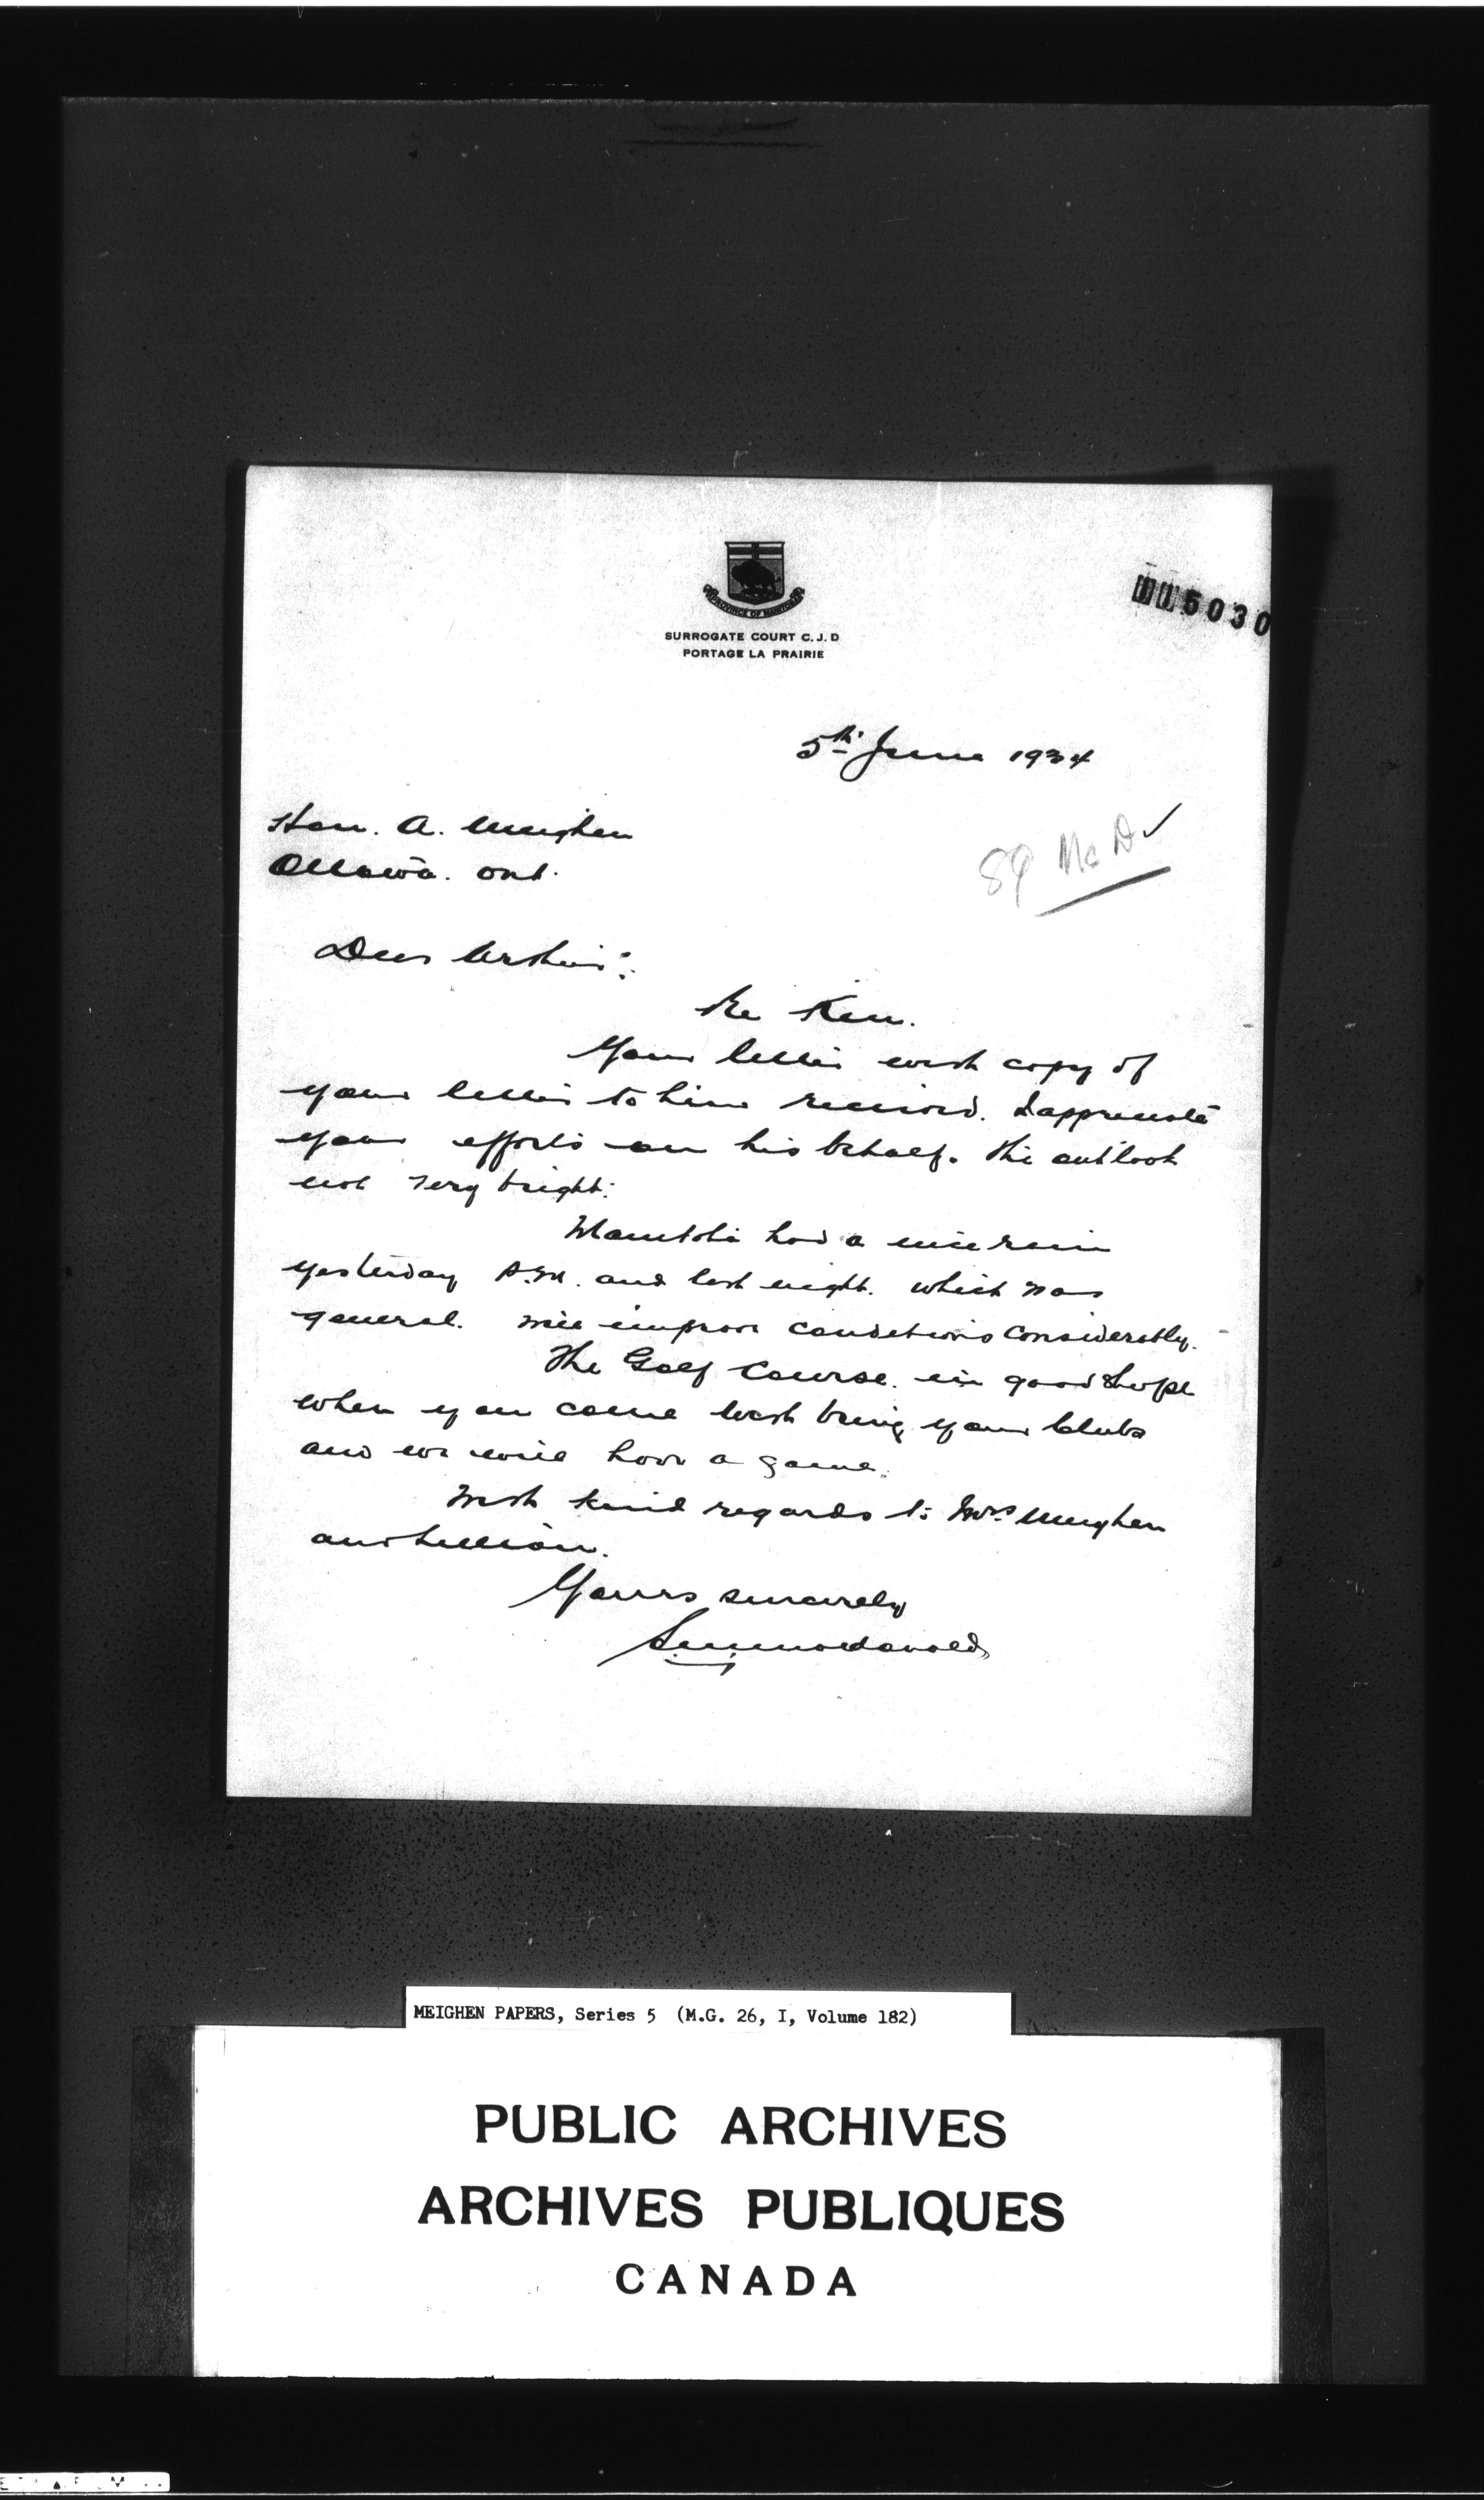 PROVINCE OF MANITOBA
SURROGATE COURT C.J.D
PORTAGE LA PRAIRIE
115030
5th June 1934
Hon. A. Meighen
Ottawa. Ont.
89 McD ✓
Dear Arthur:
Re Ken.
Your letter with copy of
your letter to him received. I appreciate
your efforts on his behalf. The outlook
not very bright.
Manitoba had a nice rain
yesterday P.M. and last night. which was
general. will improve conditions considerably.
The Golf Course. in good shape
when you come west bring your Clubs
and we will have a game.
With kind regards to Mrs Meighen
and Lillian.
Yours sincerely
Macdonald
MEIGHEN PAPERS, Series 5 (M.G. 26, I, Volume 182)
PUBLIC ARCHIVES
ARCHIVES PUBLIQUES
CANADA